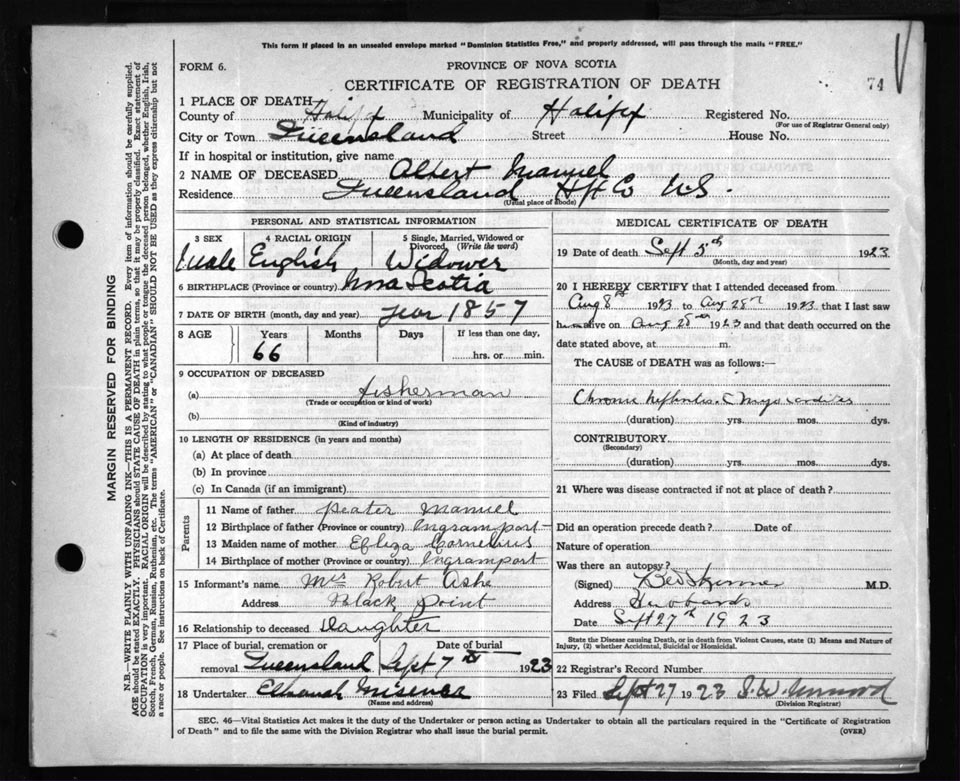 This form if placed in an unsealed envelope marked "Dominion Statistics Free," and properly addressed, will pass through the mails "FREE."
FORM 6.
PROVINCE OF NOVA SCOTIA
CERTIFICATE OF REGISTRATION OF DEATH
74
1 PLACE OF DEATH
County of Halifx Municipality of Halifx Registered No.
(For use of Registrar General only)
City or Town Queensland Street House No.
If in hospital or institution, give name
2 NAME OF DECEASED Albert Manuel
Residence Queensland Hfx Co N.S.
(Usual place of abode)
PERSONAL AND STATISTICAL INFORMATION
3 SEX 4 RACIAL ORIGIN 5 Single, Married, Widowed or Divorced, (Write the word)
Male English Widower
6 BIRTHPLACE (Province or country) Nova Scotia
7 DATE OF BIRTH (month, day and year) 1857
8 AGE Years Months Days If less than one day,
66 hrs. or min.
9 OCCUPATION OF DECEASED
(a) fisherman
(Trade or occupation or kind of work)
(b)
(Kind of industry)
10 LENGTH OF RESIDENCE (in years and months)
(a) At place of death
(b) In province
(c) In Canada (if an immigrant)
Parents
11 Name of father Peater Manuel
12 Birthplace of father (Province or country) Ingramport
13 Maiden name of mother Cornelius
14 Birthplace of mother (Province or country) Ingramport
15 Informant's name Mrs Robert Ashe
Address Black Point
16 Relationship to deceased Daughter
17 Place of burial, cremation or Date of burial
removal Queensland Sept 7th 1923
18 Undertaker Misener
(Name and address)
MEDICAL CERTIFICATE OF DEATH
19 Date of death Sept 5th 1923
(Month, day and year)
20 I HEREBY CERTIFY that I attended deceased from
Aug 8th 1923 to Aug 25th 1923 that I last saw
him alive on Aug 25th 1923 and that death occurred on the
date stated above, at m.
The CAUSE of DEATH was as follows:—
Chronic Nephritis & Myocarditis
(duration) yrs. mos. dys.
CONTRIBUTORY
(Secondary)
(duration) yrs. mos. dys.
21 Where was disease contracted if not at place of death?
Did an operation precede death? Date of
Nature of operation
Was there an autopsy?
(Signed) Skinner M.D.
Address Hubbards
Date Sept 27th 1923
State the Disease causing Death, or in death from Violent Causes, state (1) Means and Nature of
Injury, (2) whether Accidental, Suicidal or Homicidal.
22 Registrar's Record Number
23 Filed Sept 27 1923
(Division Registrar)
SEC. 46—Vital Statistics Act makes it the duty of the Undertaker or person acting as Undertaker to obtain all the particulars required in the "Certificate of Registration
of Death" and to file the same with the Division Registrar who shall issue the burial permit. (OVER)
MARGIN RESERVED FOR BINDING
N.B.—WRITE PLAINLY WITH UNFADING INK—THIS IS A PERMANENT RECORD. Every item of information should be carefully supplied.
AGE should be stated EXACTLY. PHYSICIANS should STATE CAUSE OF DEATH in plain terms, so that it may be properly classified. Exact statement of
OCCUPATION is very important. RACIAL ORIGIN will be described by stating to what people or tongue the deceased person belonged, whether English, Irish,
Scotch, French, German, Russian, Ruthenian, etc. The terms "AMERICAN" or "CANADIAN" SHOULD NOT BE USED as they express citizenship but not
a race or people. See instructions on back of Certificate.